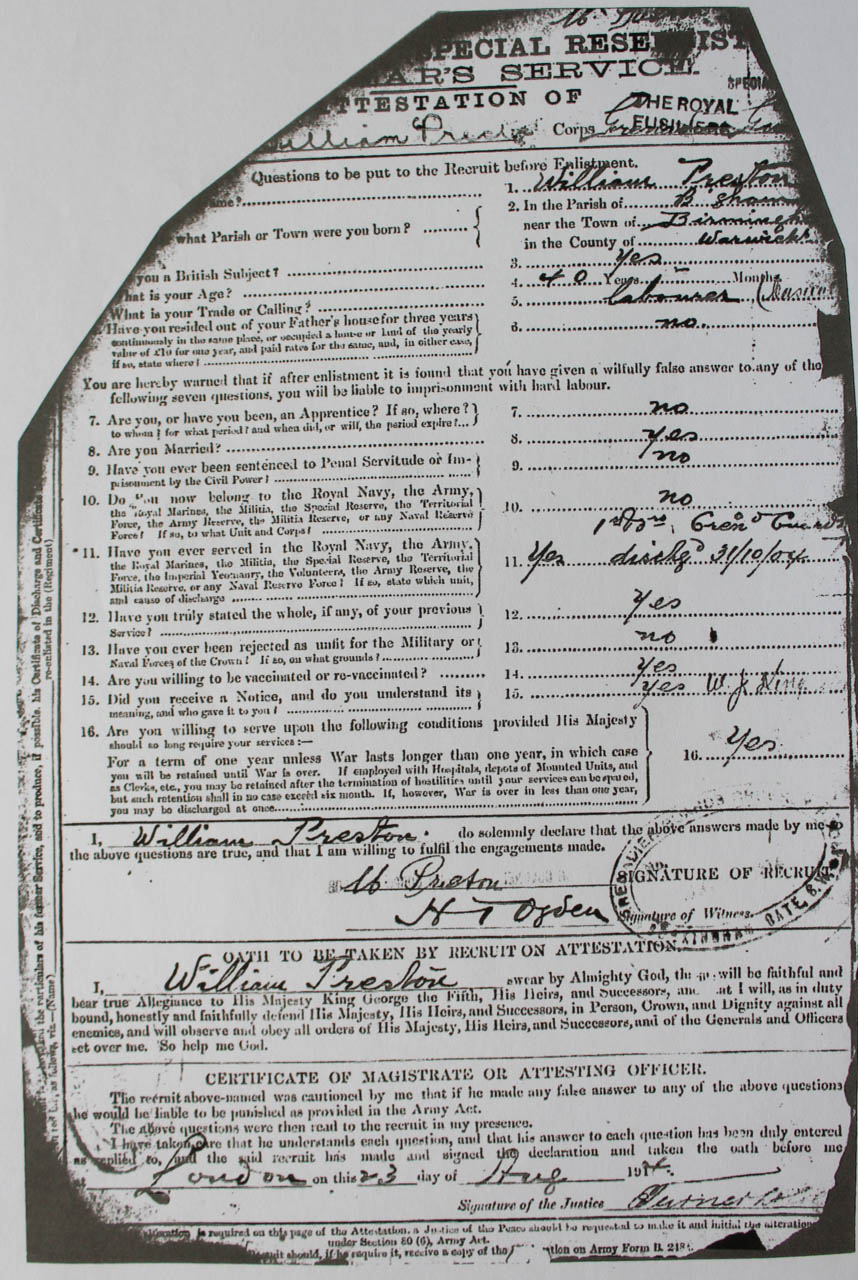 SPECIAL RESERVIST
SERVICE.
ATTESTATION OF
William Preston Corps THE ROYAL FUSILIERS
Questions to be put to the Recruit before Enlistment.
1. William Preston
2. In the Parish of
what Parish or Town were you born? near the Town of
in the County of Warwick
you a British Subject? 3. Yes
What is your Age? 4. 40 Years Months
What is your Trade or Calling? 5. Labourer
Have you resided out of your Father's house for three years
continuously in the same place, or occupied a house or land of the yearly
value of £10 for one year, and paid rates for the same, and, in either case,
if so, state where? 6. no.
You are hereby warned that if after enlistment it is found that you have given a wilfully false answer to any of the
following seven questions, you will be liable to imprisonment with hard labour.
7. Are you, or have you been, an Apprentice? If so, where? 7. no
to whom? for what period? and when did, or will, the period expire?
8. Are you Married? 8. Yes
9. Have you ever been sentenced to Penal Servitude or Im- 9. no
prisonment by the Civil Power?
10. Do you now belong to the Royal Navy, the Army, 10. no
the Royal Marines, the Militia, the Special Reserve, the Territorial
Force, the Army Reserve, the Militia Reserve, or any Naval Reserve
Force? If so, to what Unit and Corps?
Gren'd Guards
*11. Have you ever served in the Royal Navy, the Army, 11. Yes disch'd 31/10/04
the Royal Marines, the Militia, the Special Reserve, the Territorial
Force, the Imperial Yeomanry, the Volunteers, the Army Reserve, the
Militia Reserve, or any Naval Reserve Force? If so, state which unit,
and cause of discharge
12. Have you truly stated the whole, if any, of your previous 12. Yes
Service?
13. Have you ever been rejected as unfit for the Military or 13. no
Naval Forces of the Crown? If so, on what grounds?
14. Are you willing to be vaccinated or re-vaccinated? 14. Yes
15. Did you receive a Notice, and do you understand its 15. Yes W. J.
meaning, and who gave it to you?
16. Are you willing to serve upon the following conditions provided His Majesty
should so long require your services:—
For a term of one year unless War lasts longer than one year, in which case 16. Yes
you will be retained until War is over. If employed with Hospitals, depots of Mounted Units, and
as Clerks, etc., you may be retained after the termination of hostilities until your services can be spared,
but such retention shall in no case exceed six month. If, however, War is over in less than one year,
you may be discharged at once
I, William Preston. do solemnly declare that the above answers made by me to
the above questions are true, and that I am willing to fulfil the engagements made.
W Preston SIGNATURE OF RECRUIT.
H T Ogden Signature of Witness.
OATH TO BE TAKEN BY RECRUIT ON ATTESTATION.
I, William Preston swear by Almighty God, that will be faithful and
bear true Allegiance to His Majesty King George the Fifth, His Heirs, and Successors, and at I will, as in duty
bound, honestly and faithfully defend His Majesty, His Heirs, and Successors, in Person, Crown, and Dignity against all
enemies, and will observe and obey all orders of His Majesty, His Heirs, and Successors, and of the Generals and Officers
set over me. So help me God.
CERTIFICATE OF MAGISTRATE OR ATTESTING OFFICER.
The recruit above-named was cautioned by me that if he made any false answer to any of the above questions
he would be liable to be punished as provided in the Army Act.
The above questions were then read to the recruit in my presence.
I have taken care that he understands each question, and that his answer to each question has been duly entered
as replied to, and the said recruit has made and signed the declaration and taken the oath before me
at London on this 23 day of Aug 1914.
Signature of the Justice
is required on this page of the Attestation, a Justice of the Peace should be requested to make it and initial the alteration
under Section 80 (6), Army Act.
should, if he require it, receive a copy of the on Army Form B.
the particulars of his former Service, and to produce, if possible, his Certificate of Discharge and Certificate
as follows, viz:—(Name) re-enlisted in the (Regiment)